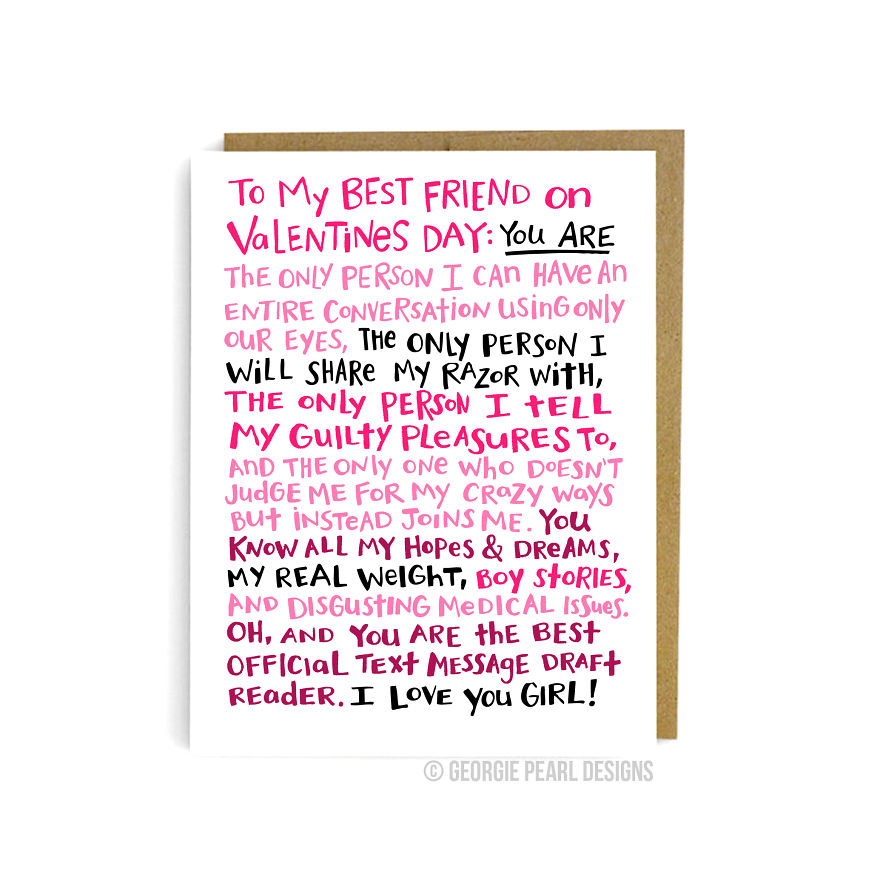 To My BEST FRIEND on
VaLENTINeS DAY: You ARE
THE ONLY PERSON I CAN HAVE AN
ENTIRE CONVERSATION USING ONLY
OUR EYES, THE ONLY PERSON I
WILL SHARE MY RAZOR WITH,
THE ONLY PERSON I TELL
MY GUILTY PLEASURES TO,
AND THE ONLY ONE WHO DOESN'T
JUDGE ME FOR MY CRAZY WAYS
BUT INSTEAD JOINS ME. YOU
KNOW ALL MY HOPES & DREAMS,
MY REAL WEIGHT, BOY STORIES,
AND DISGUSTING MEDICAL ISSUES.
OH, AND YOU ARE THE BEST
OFFICIAL TEXT MESSAGE DRAFT
READER. I LOVE YOU GIRL!
© GEORGIE PEARL DESIGNS